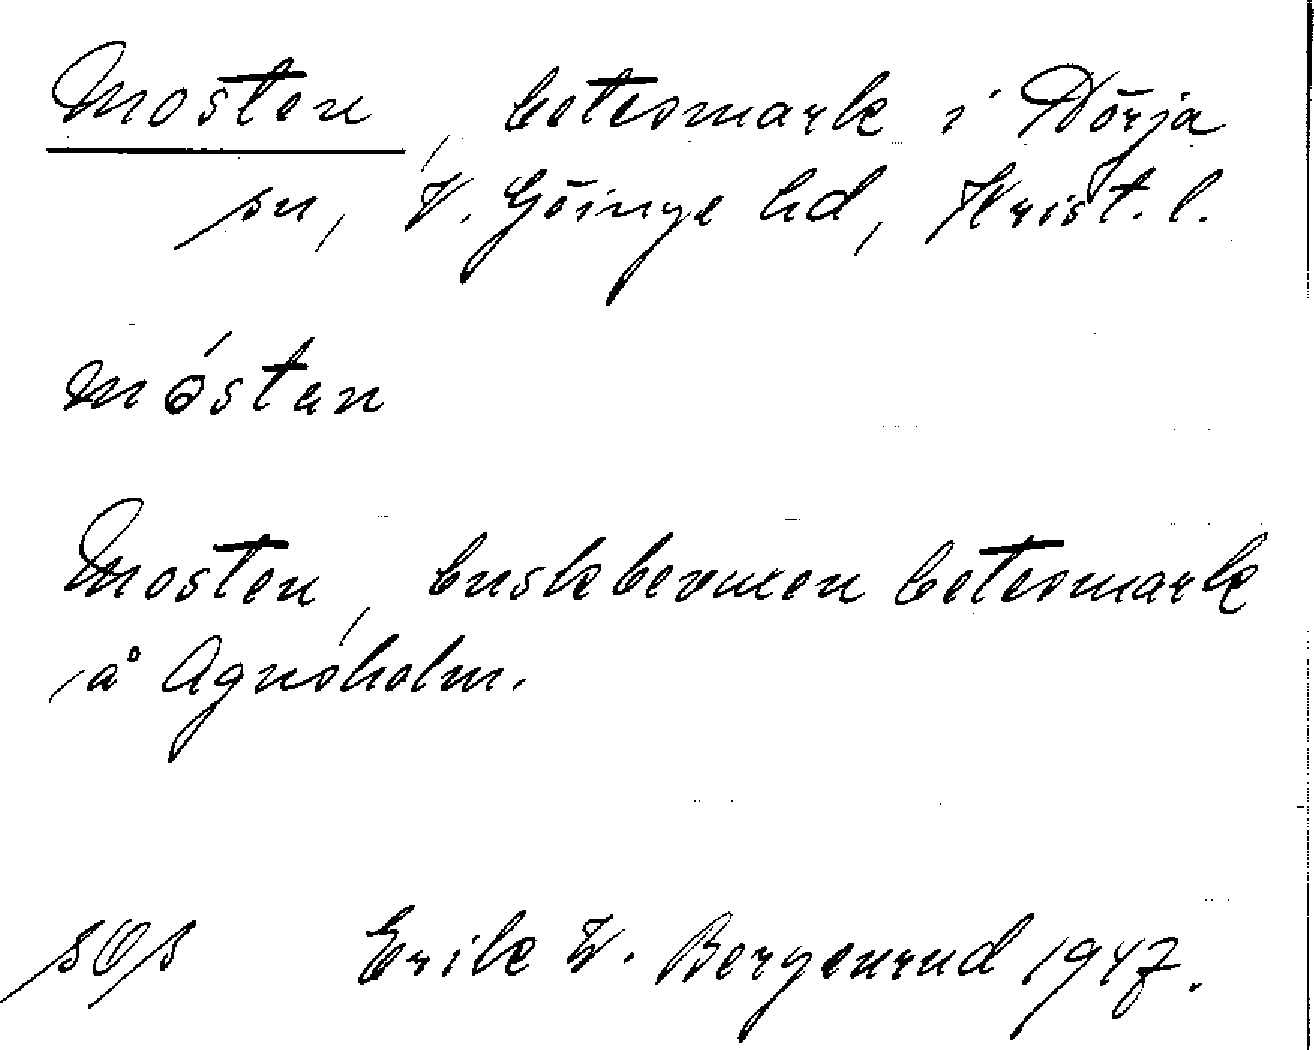 Mosten, betesmark i Nörja
sn, V. Göinge hd, Krist. l.
móstan
Mosten, buskbevuxen betesmark
å Agnsholm.
sOs Erik W. Bergenrud 1947.